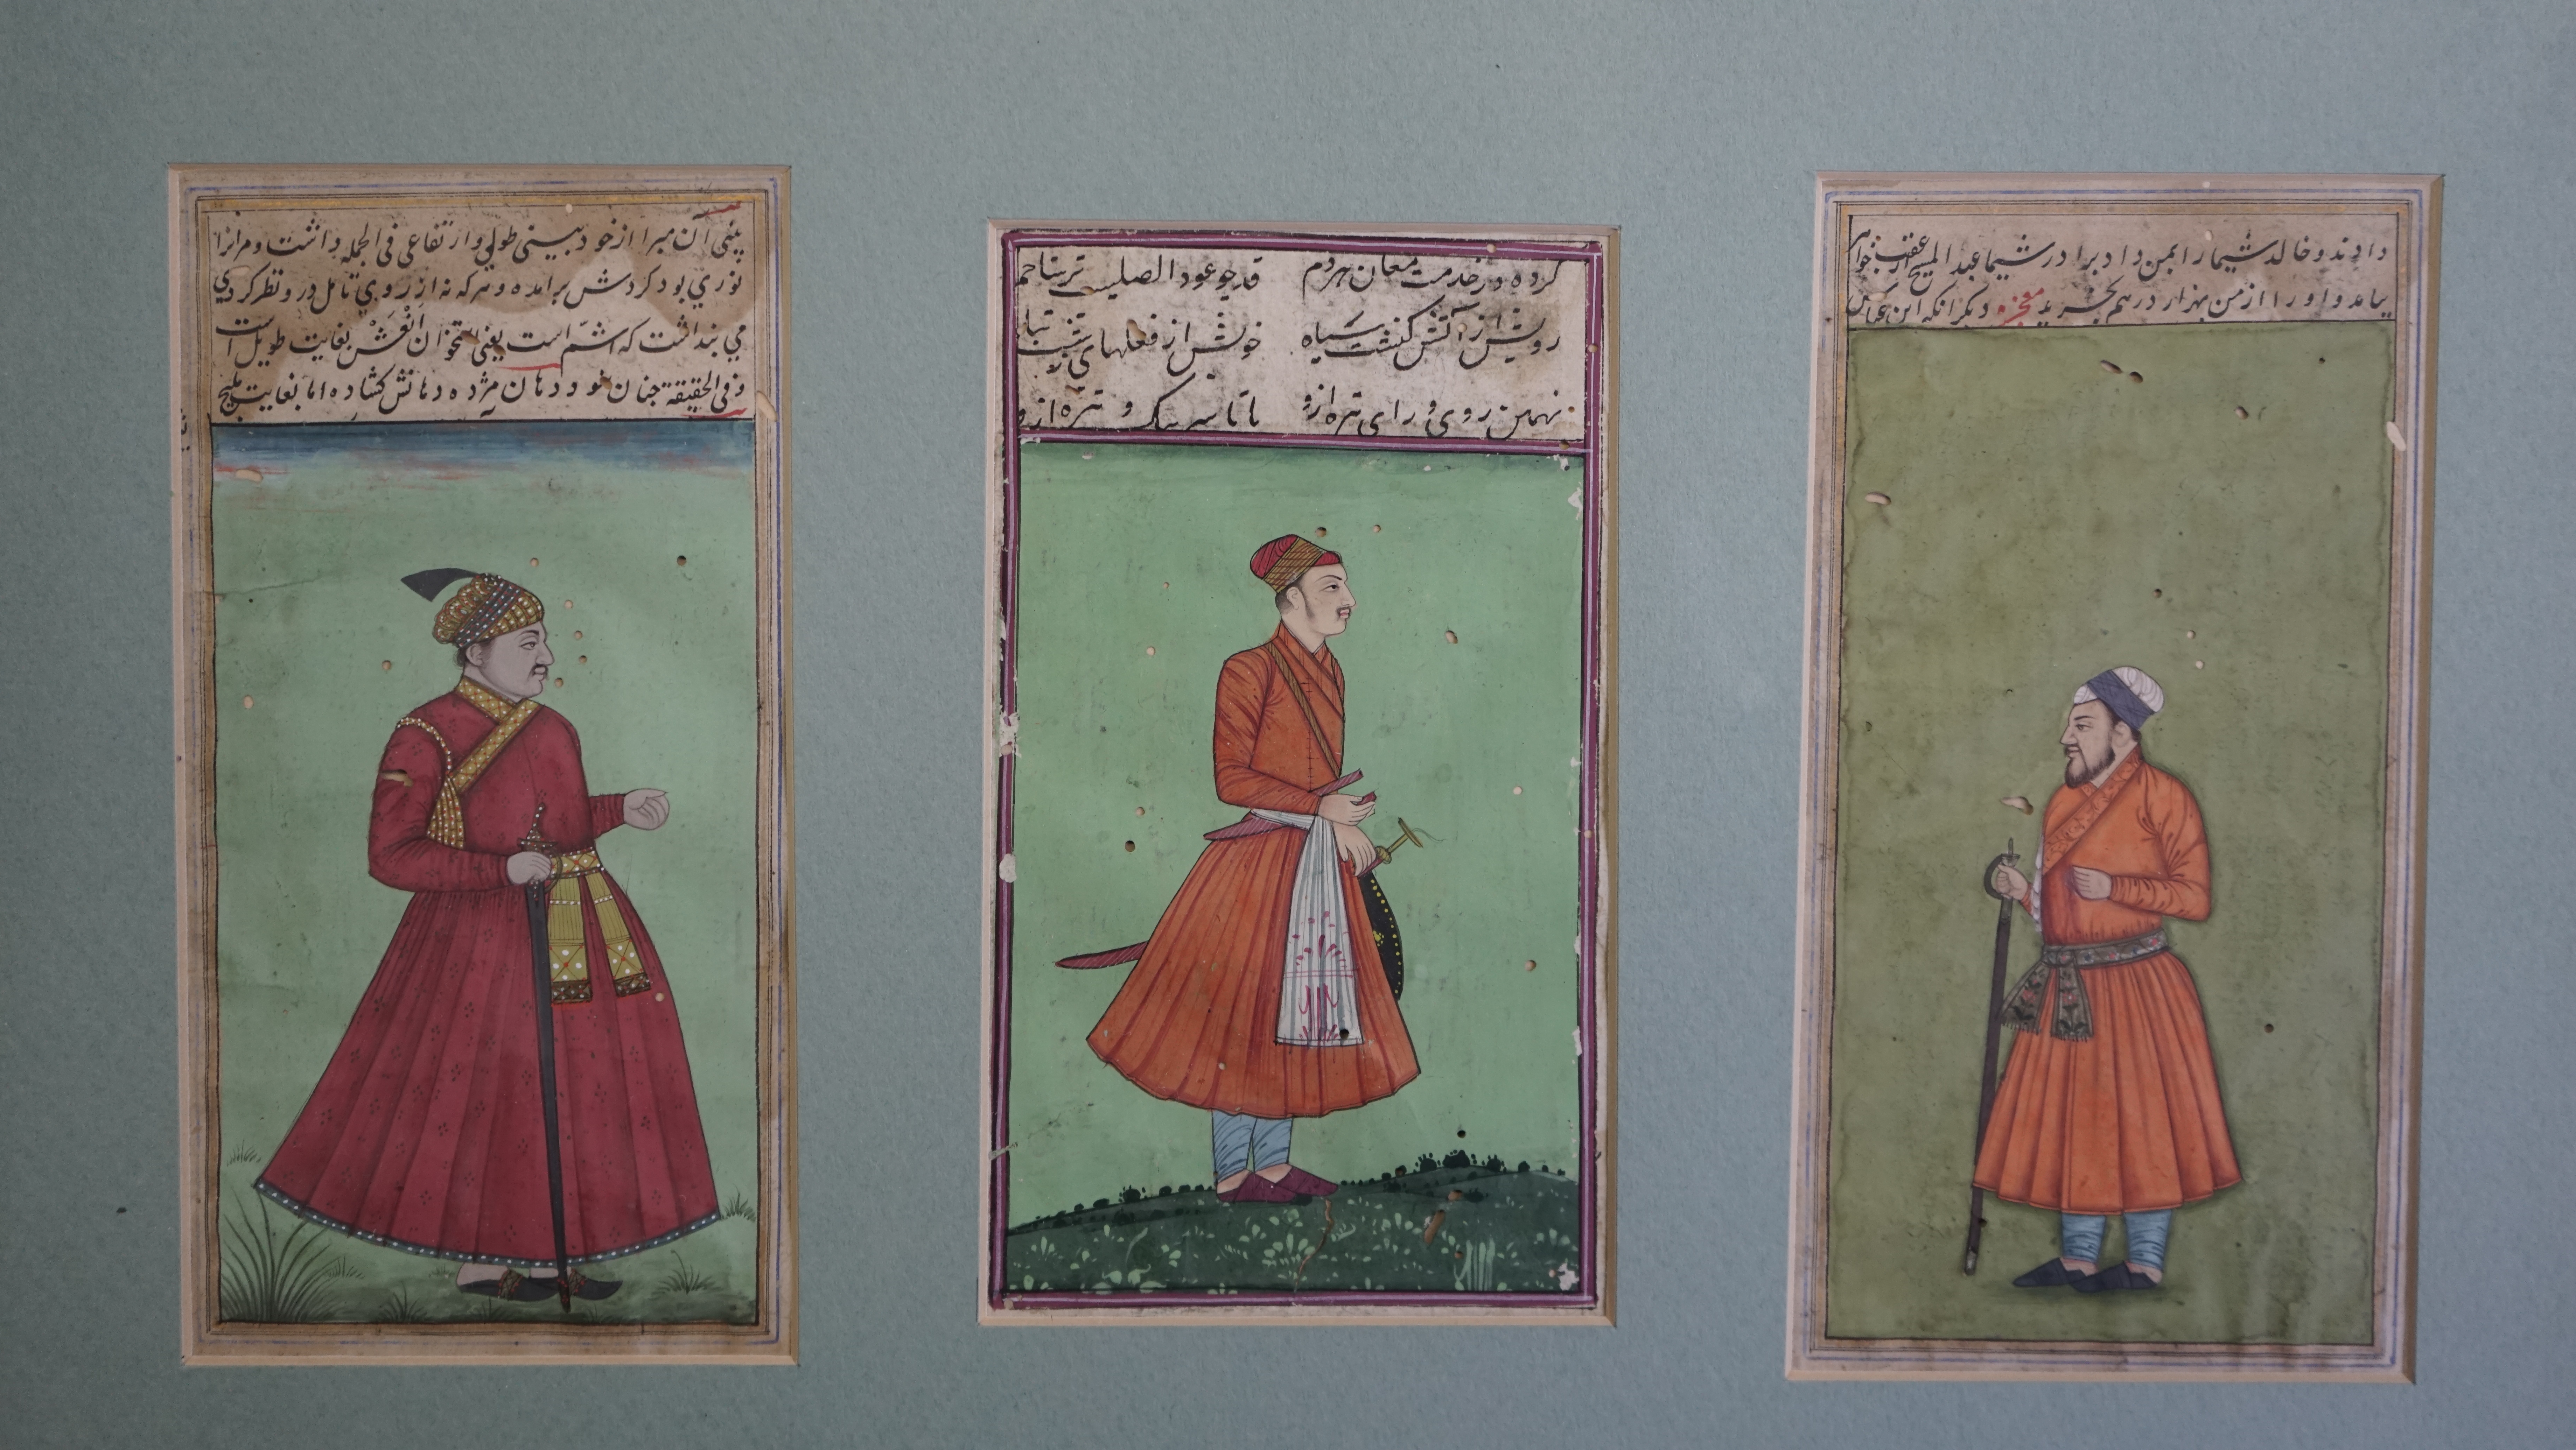 بینی آن مبرا از خود بینی طولی و ارتفاعی فی الجمله داشت و مر انرا
نوری بود کردش برامده و هر که نه از روی تامل در و نظر کردی
می بنداشت که اشمّ است یعنی استخوان انفش بغایت طویل است
و فی الحقیقة جنان نبود دهان مژده دهانش کشاده اما بغایت ملیح
کرده در خدمت مغان هردم قد چو عود الصلیب
رویش از آتش کنشت سیاه خویش از فعلهای زشت تباه
روی و رای تیره از و
دادند و خالد شیما را بمن داد برادر شیما عبد المسیح
بیامد و او را از من بهزار درهم بخرید معجزه دیکر انکه ابن عباس